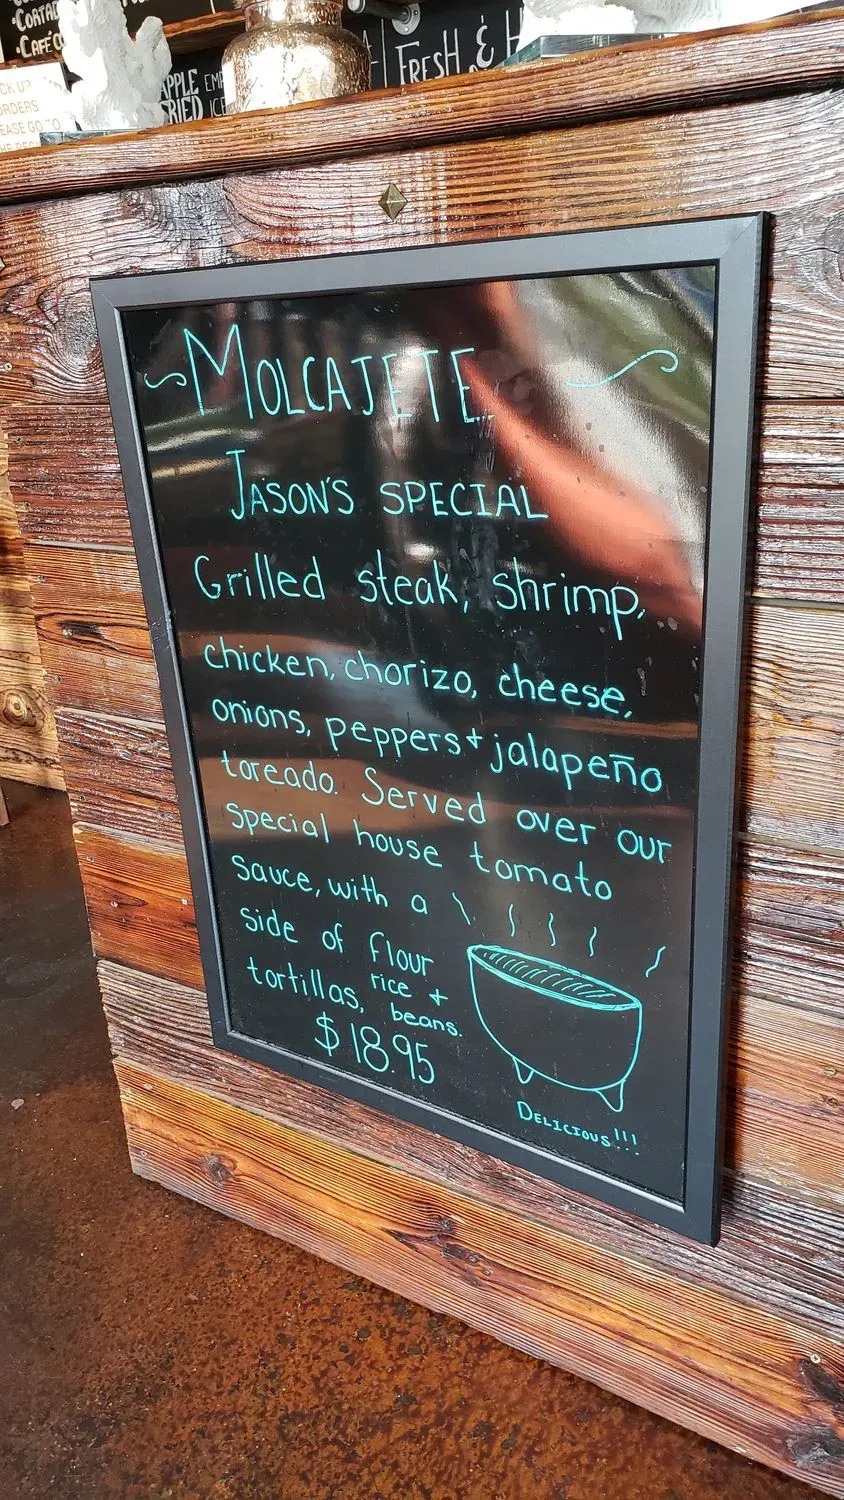 CORTAD
CAFÉ C
APPLE
FRIED
FRESH &
ORDERS
EASE GO TO
~MOLCAJETE...~
JASON'S SPECIAL
Grilled steak, shrimp,
chicken, chorizo, cheese,
onions, peppers + jalapeño
toreado. Served over our
special house tomato
sauce, with a
side of flour
tortillas, rice +
beans.
$18.95
DELICIOUS!!!